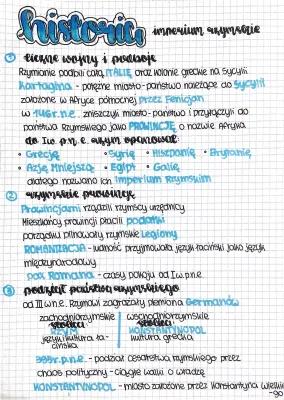 historia imperium rzymskie
1 liczne wojny i podboje
Rzymianie podbili całą ITALIĘ oraz kolonie greckie na Sycylii
Kartagina - potężne miasto-państwo należące do Sycylii
założone w Afryce północnej przez Fenicjan
w 146r.n.e. zniszczyli miasto-państwo i przyłączyli do
państwa rzymskiego jako PROWINCJĘ o nazwie Afryka
do Iw p.n.e. rzym opanował:
• Grecję • Syrię • Hiszpanię • Brytanię
• Azję Mniejszą • Egipt • Galię
dlatego nazwano ich Imperium Rzymskim
2 rzymskie prowincje
Prowincjami rządzili rzymscy urzędnicy
Mieszkańcy prowincji płacili podatki
porządku pilnowały rzymskie Legiony
ROMANIZACJA - ludność przyjmowała język łaciński jako język
międzynarodowy
pax Romana - czasy pokoju od I w. p.n.e.
3 podział państwa rzymskiego
od III w.n.e. Rzymowi zagrażały plemiona Germanów
zachodniorzymskie wschodniorzymskie
stolica: stolica:
RZYM KONSTANTYNOPOL
język i kultura ła- kultura grecka
cińska
395r.p.n.e. - podział cesarstwa rzymskiego przez
chaos polityczny - ciągłe walki o władzę
KONSTANTYNOPOL - miasto założone przez Konstantyna Wielkie
-go